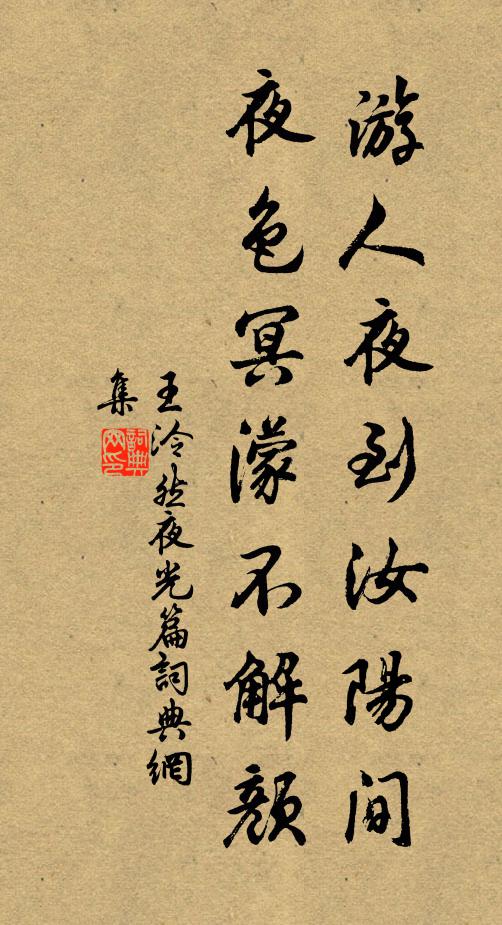 游人夜到汝陽间
夜色冥濛不解颜
王泠然夜光篇詞典網
集
詞典
网印